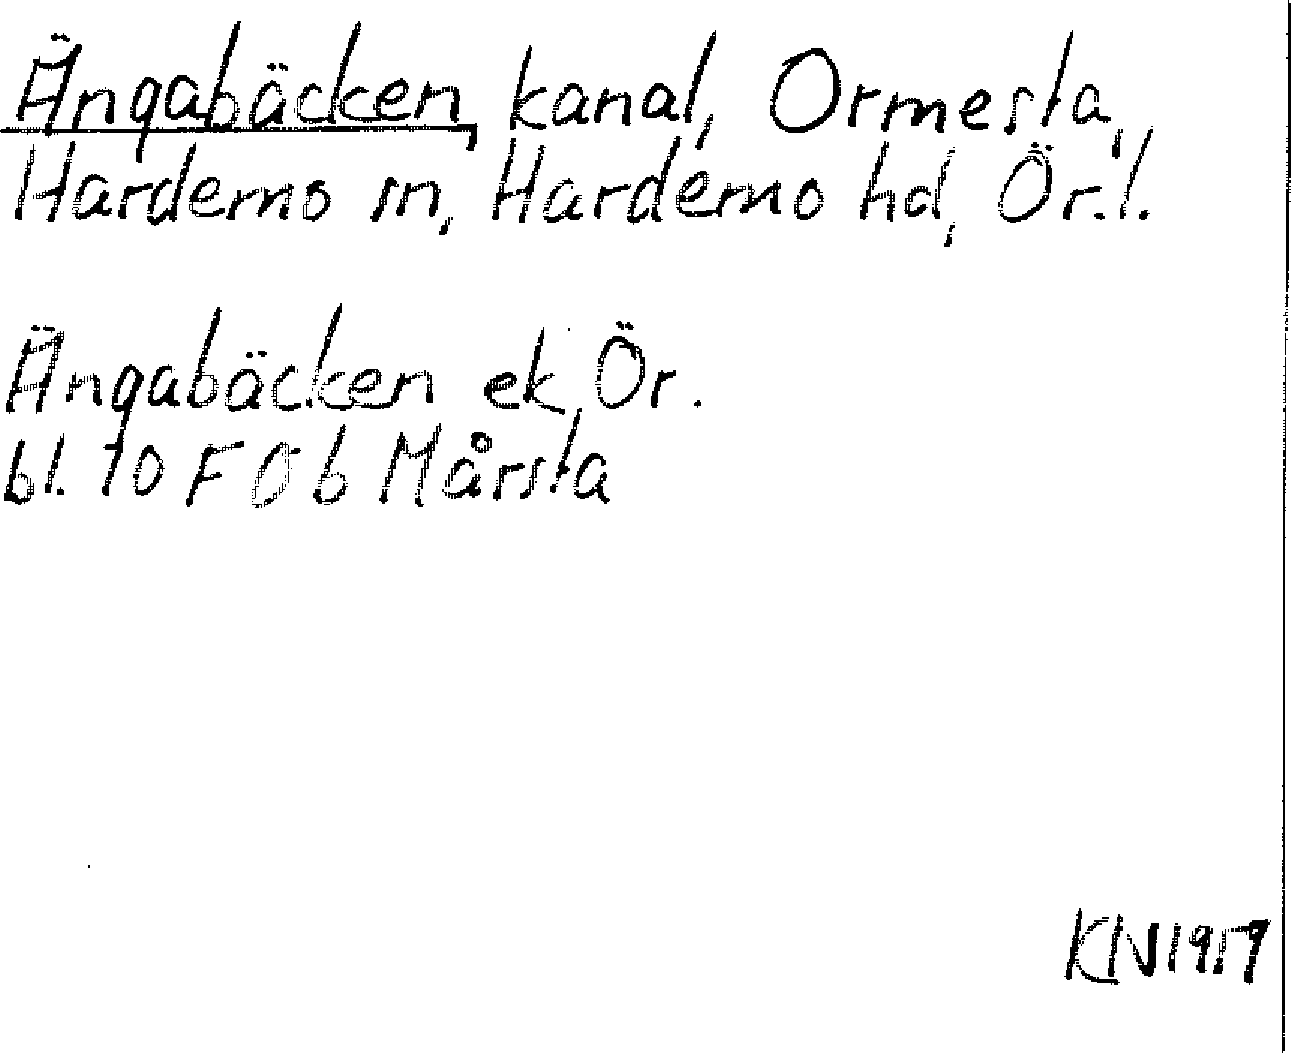 Ängabäcken, kanal, Ormesta,
Hardemo sn, Hardemo hd, Ör. l.
Ängabäcken ek. Ör.
bl. 10 F 0 b Mårsta